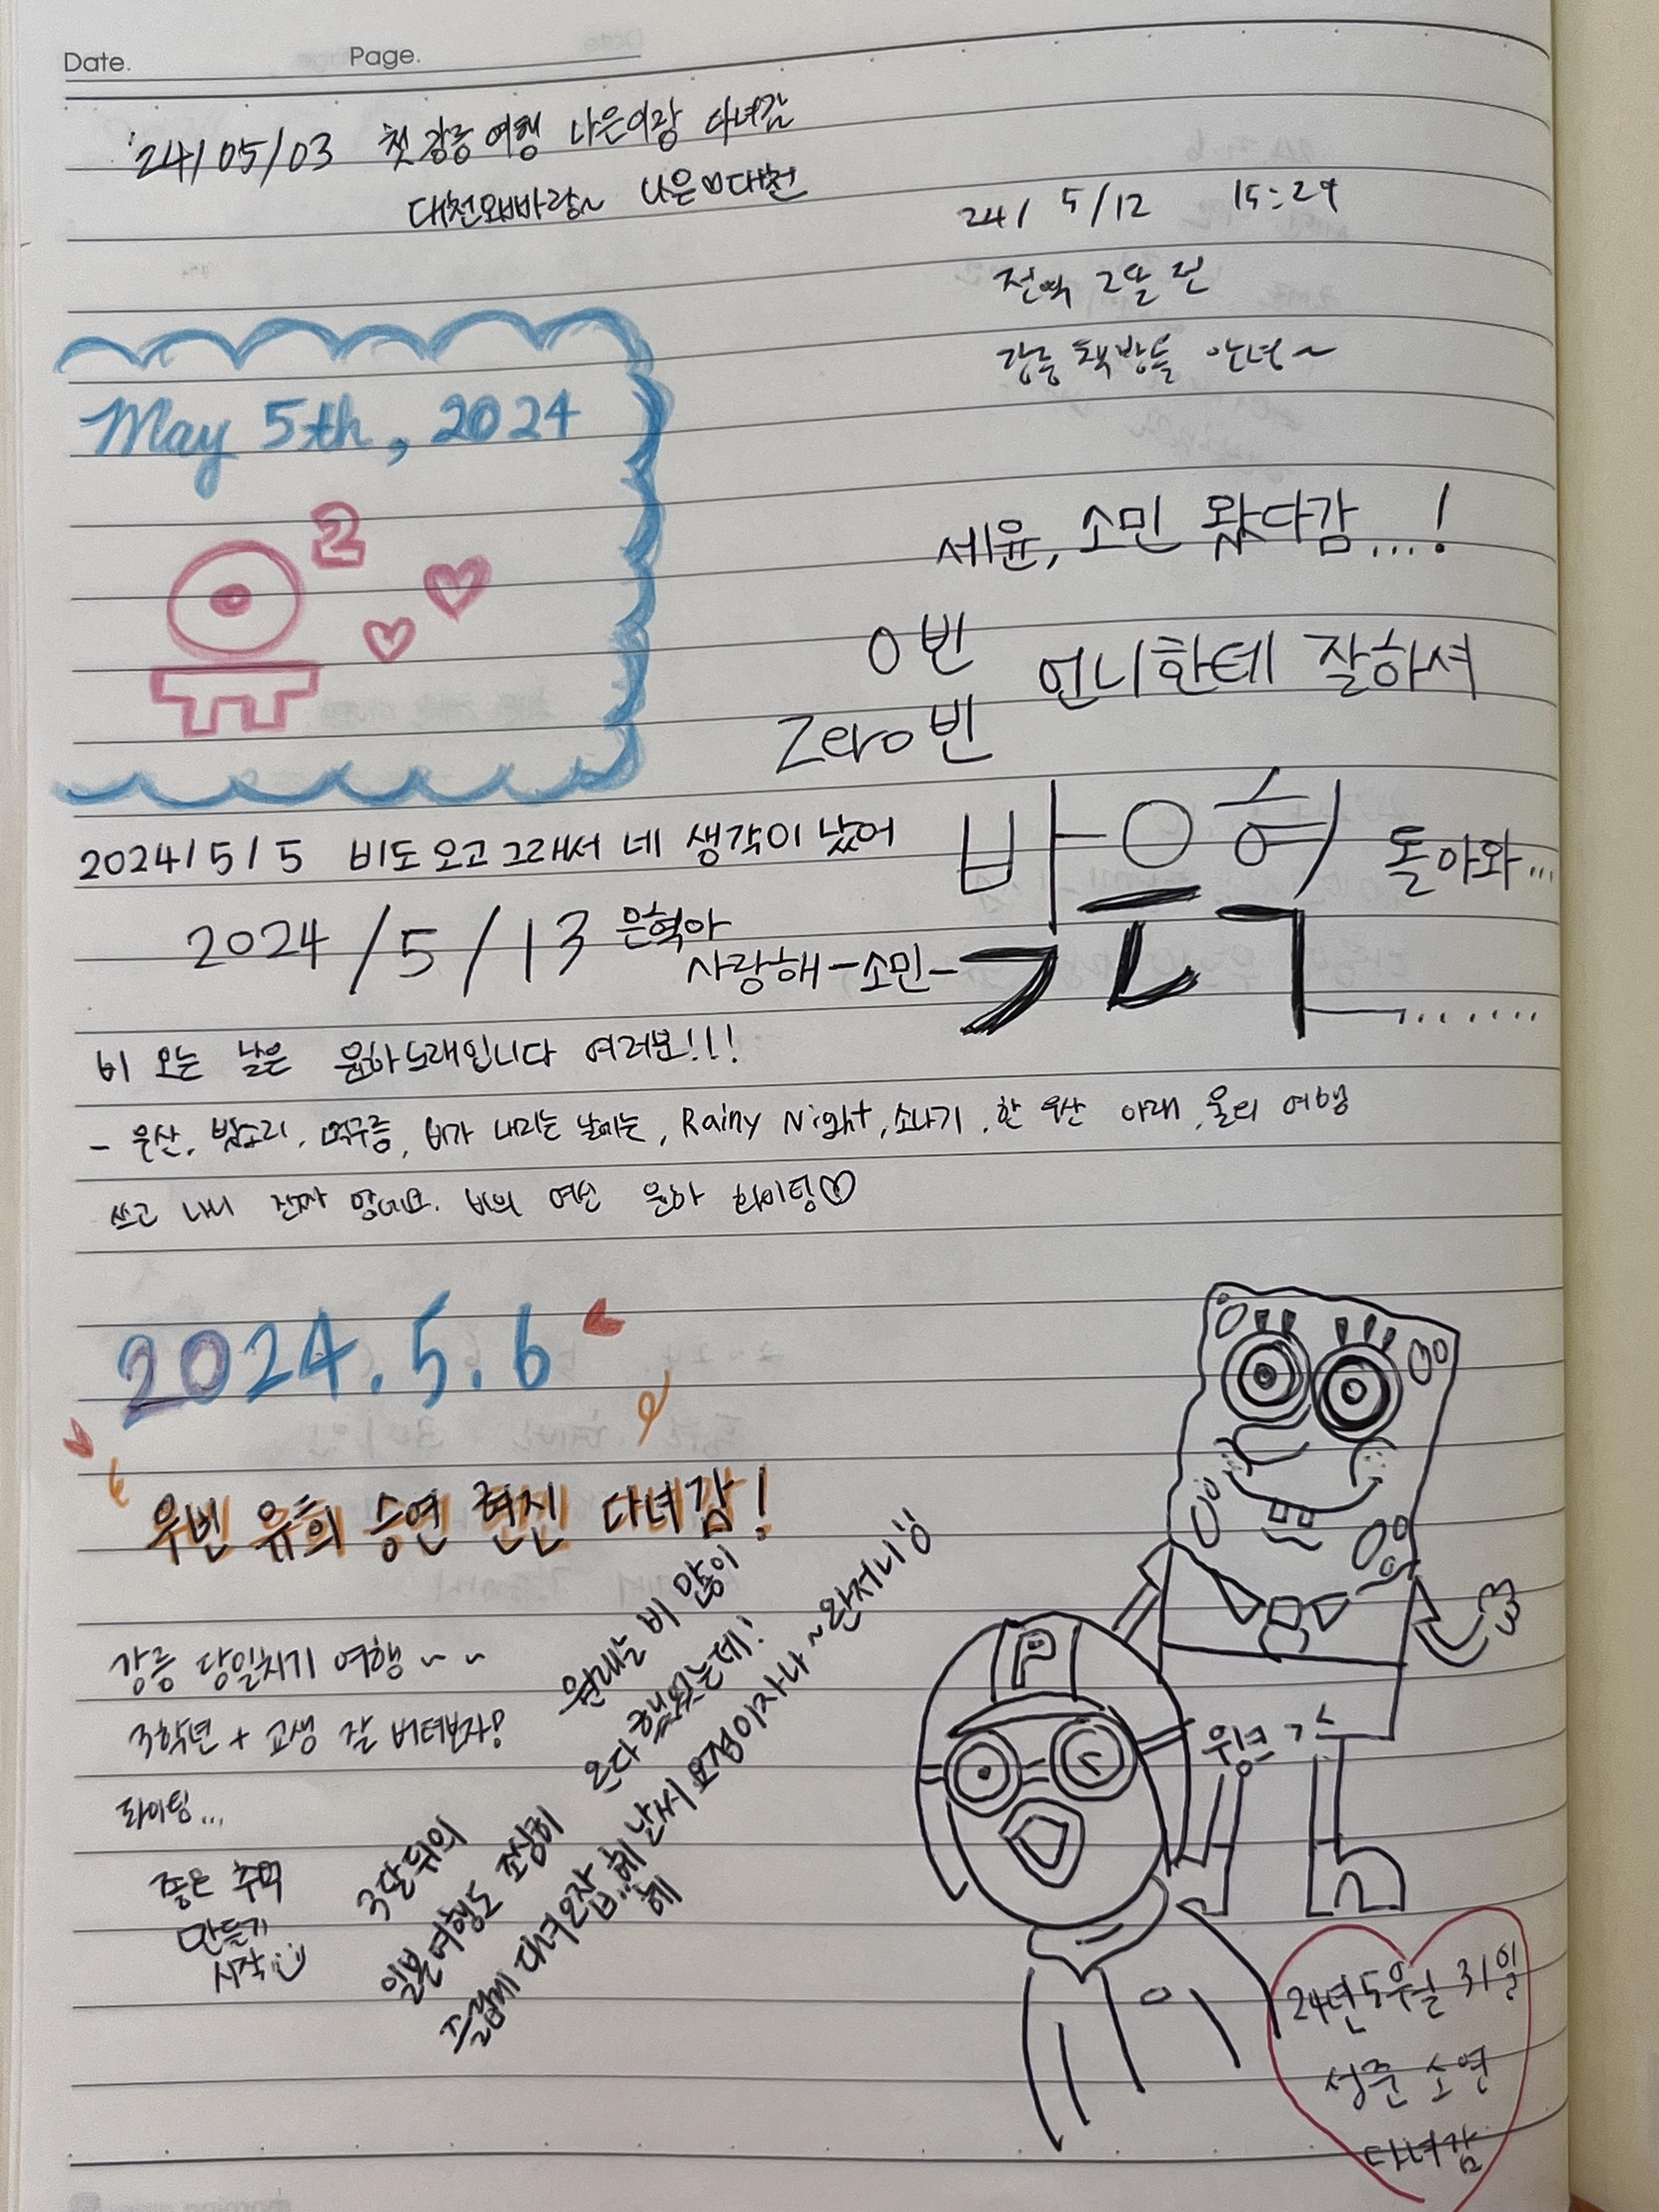 Date. Page.
'24/05/03 첫 강릉여행 나은이랑 다녀감
대천왜빠랑~ 나은♡대천
24/ 5/12 15:29
전역 2달 전
강릉 책방들 안녕~
May 5th, 2024
윤²
세윤, 소민 왔다감...!
0빈
언니한테 잘하셔
Zero빈
2024/5/5 비도 오고 그래서 네 생각이 났어
박은혁 돌아와...
2024/5/13 은혁아
사랑해-소민-
비 오는 날은 윤하노래입니다 여러분!!!
- 우산, 빗소리, 먹구름, 비가 내리는 날에는, Rainy Night, 소나기, 한 우산 아래, 우리 여행
쓰고 나니 진짜 많네요. 비의 여신 윤하 화이팅♡
2024.5.6
우빈 유희 승연 현진 다녀감!
강릉 당일치기 여행~~
3학년 + 교생 잘 버텨보자!
화이팅...
좋은 추억
만들기
시작
원래는 비 많이
온다 했었는데!
완전니
날씨요정이자나~
3달뒤의
일본여행도 조심히
즐겁게 다녀오잡..헤
헤
P
윙크
24년도 5월 31일
성준 소연
다녀감